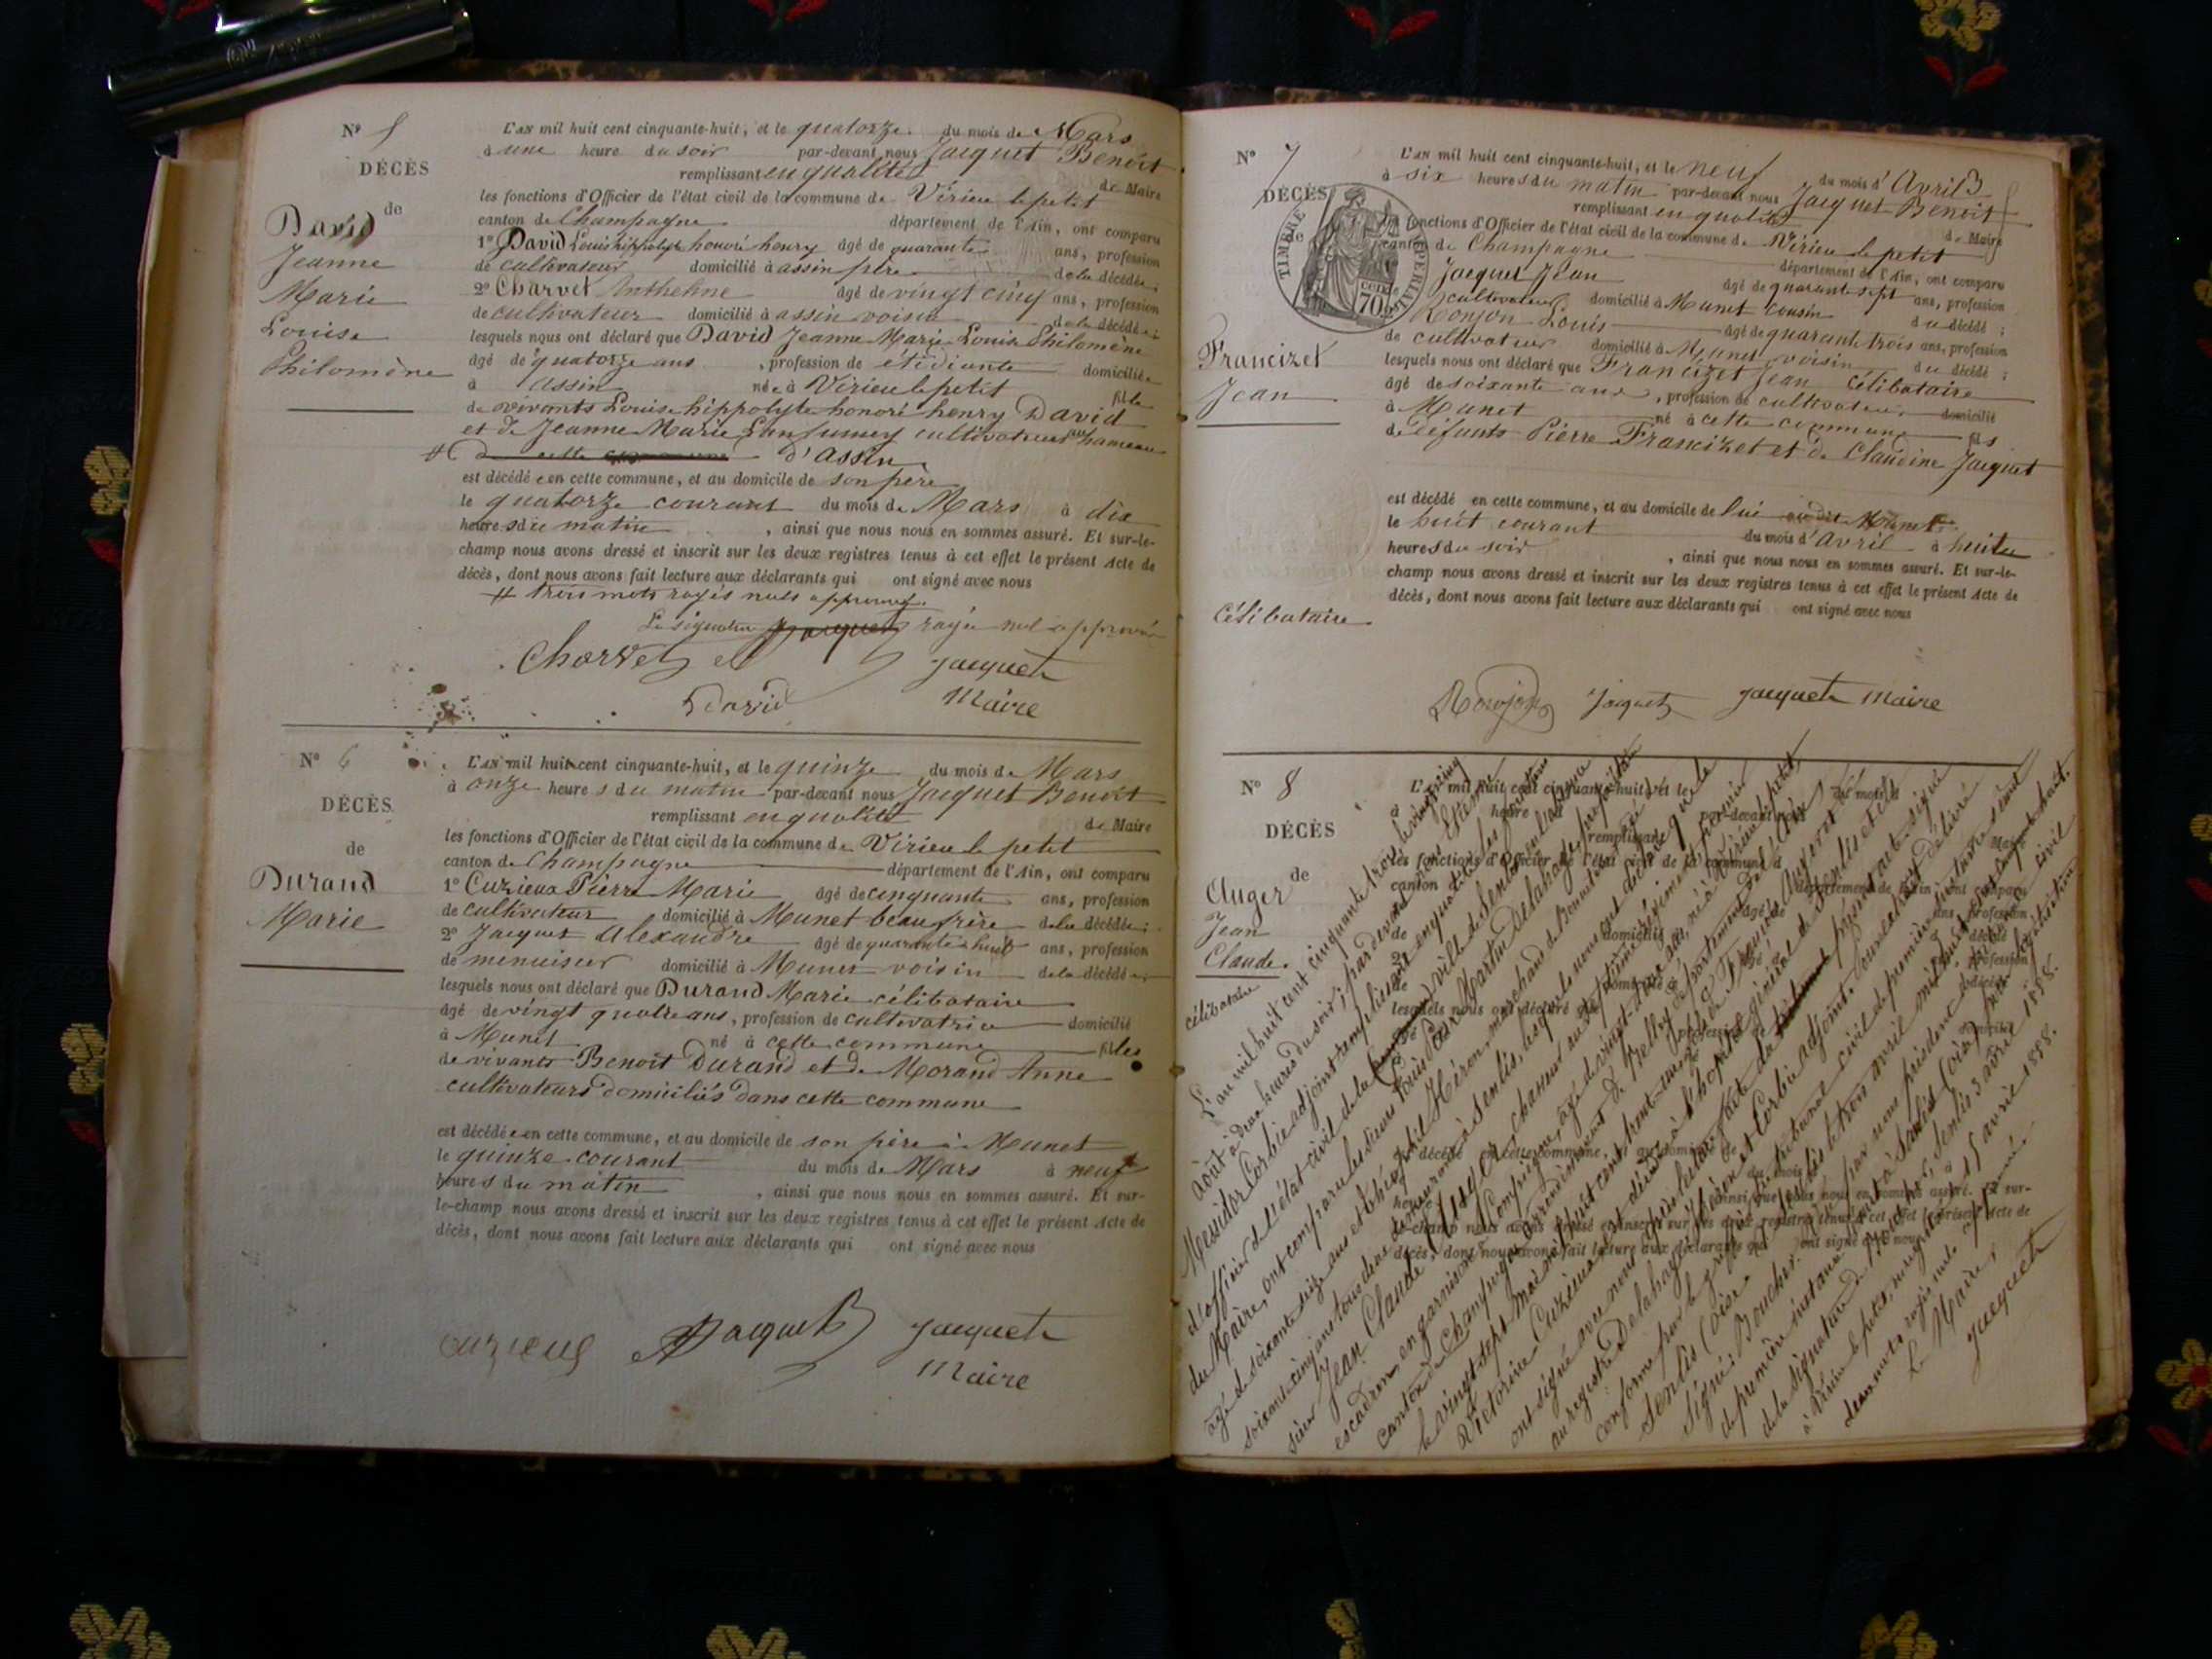 N° 5
DÉCÈS
de
David
Jeanne
Marie
Louise
Philomène
L'AN mil huit cent cinquante-huit, et le quatorze du mois de Mars
à une heure du soir par-devant nous Jacquet Benoit
remplissant en qualité de Maire
les fonctions d'Officier de l'état civil de la commune de Virieu le petit
canton de Champagne département de l'Ain, ont comparu
1° David Louis hippolyte honoré henry âgé de quarante ans, profession
de cultivateur domicilié à assin père de la décédée ;
2° Charvet Anthelme âgé de vingt cinq ans, profession
de cultivateur domicilié à assin voisin de la décédée ;
lesquels nous ont déclaré que David Jeanne Marie Louise Philomène
âgé de quatorze ans , profession de étudiante domiciliée
à assin née à Virieu le petit fille
de vivants Louis hippolyte honoré henry David
et de Jeanne Marie cultivateurs au hameau
d'Assin
est décédée en cette commune, et au domicile de son père
le quatorze courant du mois de Mars à dix
heures du matin , ainsi que nous nous en sommes assuré. Et sur-le-
champ nous avons dressé et inscrit sur les deux registres tenus à cet effet le présent Acte de
décès, dont nous avons fait lecture aux déclarants qui ont signé avec nous
# trois mots rayés nuls approuvés.
La signature Jacquet rayée nul approuvée
Charvet Jacquet
David Maire
N° 6
DÉCÈS
de
Durand
Marie
L'AN mil huit cent cinquante-huit, et le quinze du mois de Mars
à onze heures du matin par-devant nous Jacquet Benoit
remplissant en qualité de Maire
les fonctions d'Officier de l'état civil de la commune de Virieu le petit
canton de Champagne département de l'Ain, ont comparu
1° Cuzieux Pierre Marie âgé de cinquante ans, profession
de cultivateur domicilié à Munet beau frère de la décédée ;
2° Jacquet Alexandre âgé de quarante huit ans, profession
de menuisier domicilié à Munet voisin de la décédée ;
lesquels nous ont déclaré que Durand Marie célibataire
âgé de vingt quatre ans, profession de cultivatrice domicilié
à Munet né à cette commune fille
de vivants Benoit Durand et de Morand Anne
cultivateurs domiciliés dans cette commune
est décédée en cette commune, et au domicile de son père à Munet
le quinze courant du mois de Mars à neuf
heures du matin , ainsi que nous nous en sommes assuré. Et sur-
le-champ nous avons dressé et inscrit sur les deux registres tenus à cet effet le présent Acte de
décès, dont nous avons fait lecture aux déclarants qui ont signé avec nous
Cuzieux Jacquet Jacquet
Maire
N° 7
DÉCÈS
de
TIMBRE IMPÉRIAL
70
Francizet
Jean
Célibataire
L'AN mil huit cent cinquante-huit, et le neuf du mois d'Avril
à six heures du matin par-devant nous Jacquet Benoit
remplissant en qualité de Maire
les fonctions d'Officier de l'état civil de la commune de Virieu le petit
canton de Champagne département de l'Ain, ont comparu
Jacquet Jean âgé de quarante sept ans, profession
cultivateur domicilié à Munet cousin du décédé ;
Ronjon Louis âgé de quarante trois ans, profession
de cultivateur domicilié à Munet voisin du décédé ;
lesquels nous ont déclaré que Francizet Jean Célibataire
âgé de soixante ans , profession de cultivateur domicilié
à Munet né à cette commune fils
de défunts Pierre Francizet et de Claudine Jacquet
est décédé en cette commune, et au domicile de lui audit Munet
le huit courant du mois d'Avril à huit
heures du soir , ainsi que nous nous en sommes assuré. Et sur-le-
champ nous avons dressé et inscrit sur les deux registres tenus à cet effet le présent Acte de
décès, dont nous avons fait lecture aux déclarants qui ont signé avec nous
Ronjon Jacquet Jacquet Maire
N° 8
DÉCÈS
de
Auger
Jean
Claude.
célibataire
L'an mil huit cent cinquante trois, le vingt cinq
Août à deux heures du soir, pardevant nous Etienne
Messidor Corbie adjoint remplissant en qualité les fonctions
d'officier de l'état civil de la ville de Senlis
du Maire, ont comparu les sieurs Louis Martin Delahaye
âgé de soixante seize ans et Théophile Héron marchand de
soixante cinq ans tous deux demeurant à Senlis, lesquels nous ont déclaré que le
sieur Jean Claude Auger, chasseur au septième régiment premier
escadron en garnison à Compiègne, âgé de vingt-deux ans, né à Virieu le petit,
canton de Champagne arrondissement de Belley département de l'Ain
le vingt sept mai mil huit cent trente-un, fils de François Auger et de
Victorine Cuzieux, est décédé à l'hôpital général de Senlis et ont
ont signé avec nous après lecture faite du présent acte signé
au registre Delahaye, Héron et Corbie adjoint. Pour extrait délivré
conforme par le greffier du tribunal civil de première instance séant
Senlis (Oise) le trois avril mil huit cent cinquante huit.
Signé Boucher.
de première instance séant à Senlis (Oise) pour légalisation
de la signature de Mr Boucher, Senlis 3 avril 1858.
à Virieu le petit, 15 avril 1858.
deux mots rayés nuls approuvés
Le Maire,
Jacquet